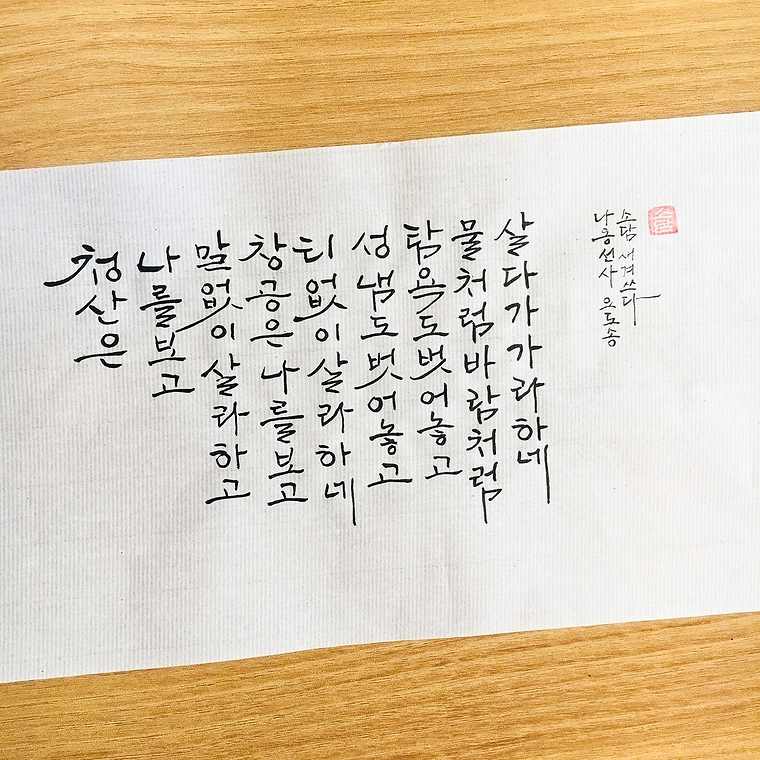 청산은
나를보고
말없이살라하고
창공은나를보고
티없이살라하네
성냄도벗어놓고
탐욕도벗어놓고
물처럼바람처럼
살다가가라하네
나옹선사 의도송
소담 새겨쓰다
소담